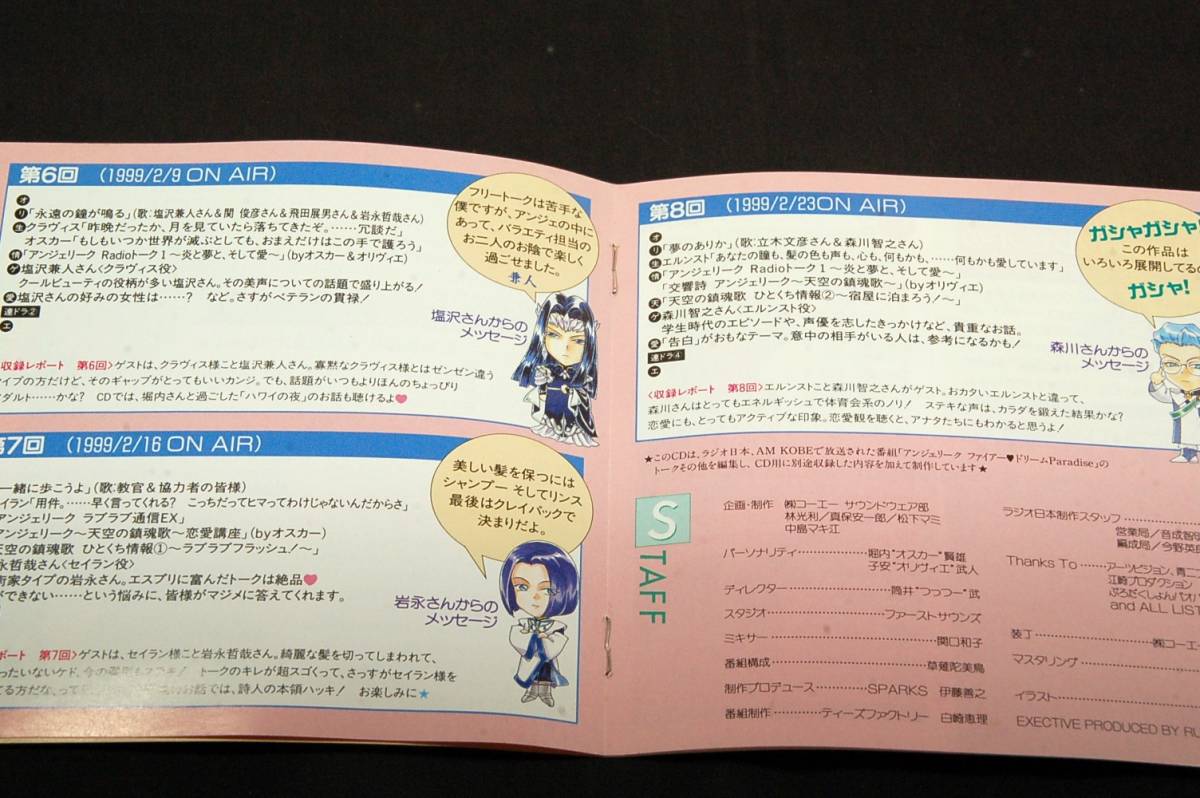 第6回 (1999/2/9 ON AIR)
オ
リ「永遠の鐘が鳴る」(歌:塩沢兼人さん&関 俊彦さん&飛田展男さん&岩永哲哉さん)
生 クラヴィス「昨晩だったか、月を見ていたら落ちてきたぞ。……冗談だ」
オスカー「もしもいつか世界が滅ぶとしても、おまえだけはこの手で護ろう」
情「アンジェリーク Radioトーク1〜炎と夢と、そして愛〜」(byオスカー&オリヴィエ)
ゲ 塩沢兼人さん<クラヴィス役>
クールビューティの役柄が多い塩沢さん。その美声についての話題で盛り上がる!
愛 塩沢さんの好みの女性は……? など。さすがベテランの貫禄!
連ドラ2
エ
収録レポート 第6回>ゲストは、クラヴィス様こと塩沢兼人さん。寡黙なクラヴィス様とはゼンゼン違う
イプの方だけど、そのギャップがとってもいいカンジ。でも、話題がいつもよりほんのちょっぴり
ダルト……かな? CDでは、堀内さんと過ごした「ハワイの夜」のお話も聴けるよ♥
フリートークは苦手な
僕ですが、アンジェの中に
あって、バラエティ担当の
お二人のお陰で楽しく
過ごせました。
兼人
塩沢さんからの
メッセージ
第7回 (1999/2/16 ON AIR)
一緒に歩こうよ」(歌:教官&協力者の皆様)
イラン「用件。……早く言ってくれる? こっちだってヒマってわけじゃないんだからさ」
アンジェリーク ラブラブ通信EX」
アンジェリーク〜天空の鎮魂歌〜恋愛講座」(byオスカー)
天空の鎮魂歌 ひとくち情報①〜ラブラブフラッシュ!〜」
永哲哉さん<セイラン役>
術家タイプの岩永さん。エスプリに富んだトークは絶品♥
ができない……という悩みに、皆様がマジメに答えてくれます。
ポート 第7回>ゲストは、セイラン様こと岩永哲哉さん。綺麗な髪を切ってしまわれて、
ったいないケド、今の髪型もステキ! トークのキレが超スゴくって、さっすがセイラン様を
お話では、詩人の本領ハッキ! お楽しみに★
美しい髪を保つには
シャンプー そしてリンス
最後はクレイパックで
決まりだよ。
岩永さんからの
メッセージ
第8回 (1999/2/23ON AIR)
オ
リ「夢のありか」(歌:立木文彦さん&森川智之さん)
生 エルンスト「あなたの瞳も、髪の色も声も、心も、何もかも、……何もかも愛しています」
情「アンジェリーク Radioトーク1〜炎と夢と、そして愛〜」
「交響詩 アンジェリーク〜天空の鎮魂歌〜」(byオリヴィエ)
天「天空の鎮魂歌 ひとくち情報②〜宿屋に泊まろう!〜」
ゲ 森川智之さん<エルンスト役>
学生時代のエピソードや、声優を志したきっかけなど、貴重なお話。
愛「告白」がおもなテーマ。意中の相手がいる人は、参考になるかも!
連ドラ4
エ
<収録レポート 第8回>エルンストこと森川智之さんがゲスト。おカタいエルンストと違って、
森川さんはとってもエネルギッシュで体育会系のノリ! ステキな声は、カラダを鍛えた結果かな?
恋愛にも、とってもアクティブな印象。恋愛観を聴くと、アナタたちにもわかると思うよ!
ガシャガシャ!
この作品は
いろいろ展開してるの
ガシャ!
森川さんからの
メッセージ
★このCDは、ラジオ日本、AM KOBEで放送された番組「アンジェリーク ファイアー♥ドリームParadise」の
トークその他を編集し、CD用に別途収録した内容を加えて制作しています★
STAFF
企画・制作 ㈱コーエー サウンドウェア部
林光利/真保安一郎/松下マミ
中島マキ江
パーソナリティ……堀内"オスカー"賢雄
子安"オリヴィエ"武人
ディレクター……筒井"つっつー"武
スタジオ……ファーストサウンズ
ミキサー……関口和子
番組構成……草薙陀美鳥
制作プロデュース……SPARKS 伊藤善之
番組制作……ティーズファクトリー 白崎恵理
ラジオ日本制作スタッフ……
営業局/音成智明
編成局/今野英
Thanks To……アーツビジョン、青二
江崎プロダクション
ぷろだくしょんバオバ
and ALL LIST
装丁……㈱コーエー
マスタリング……
イラスト……
EXECTIVE PRODUCED BY RU